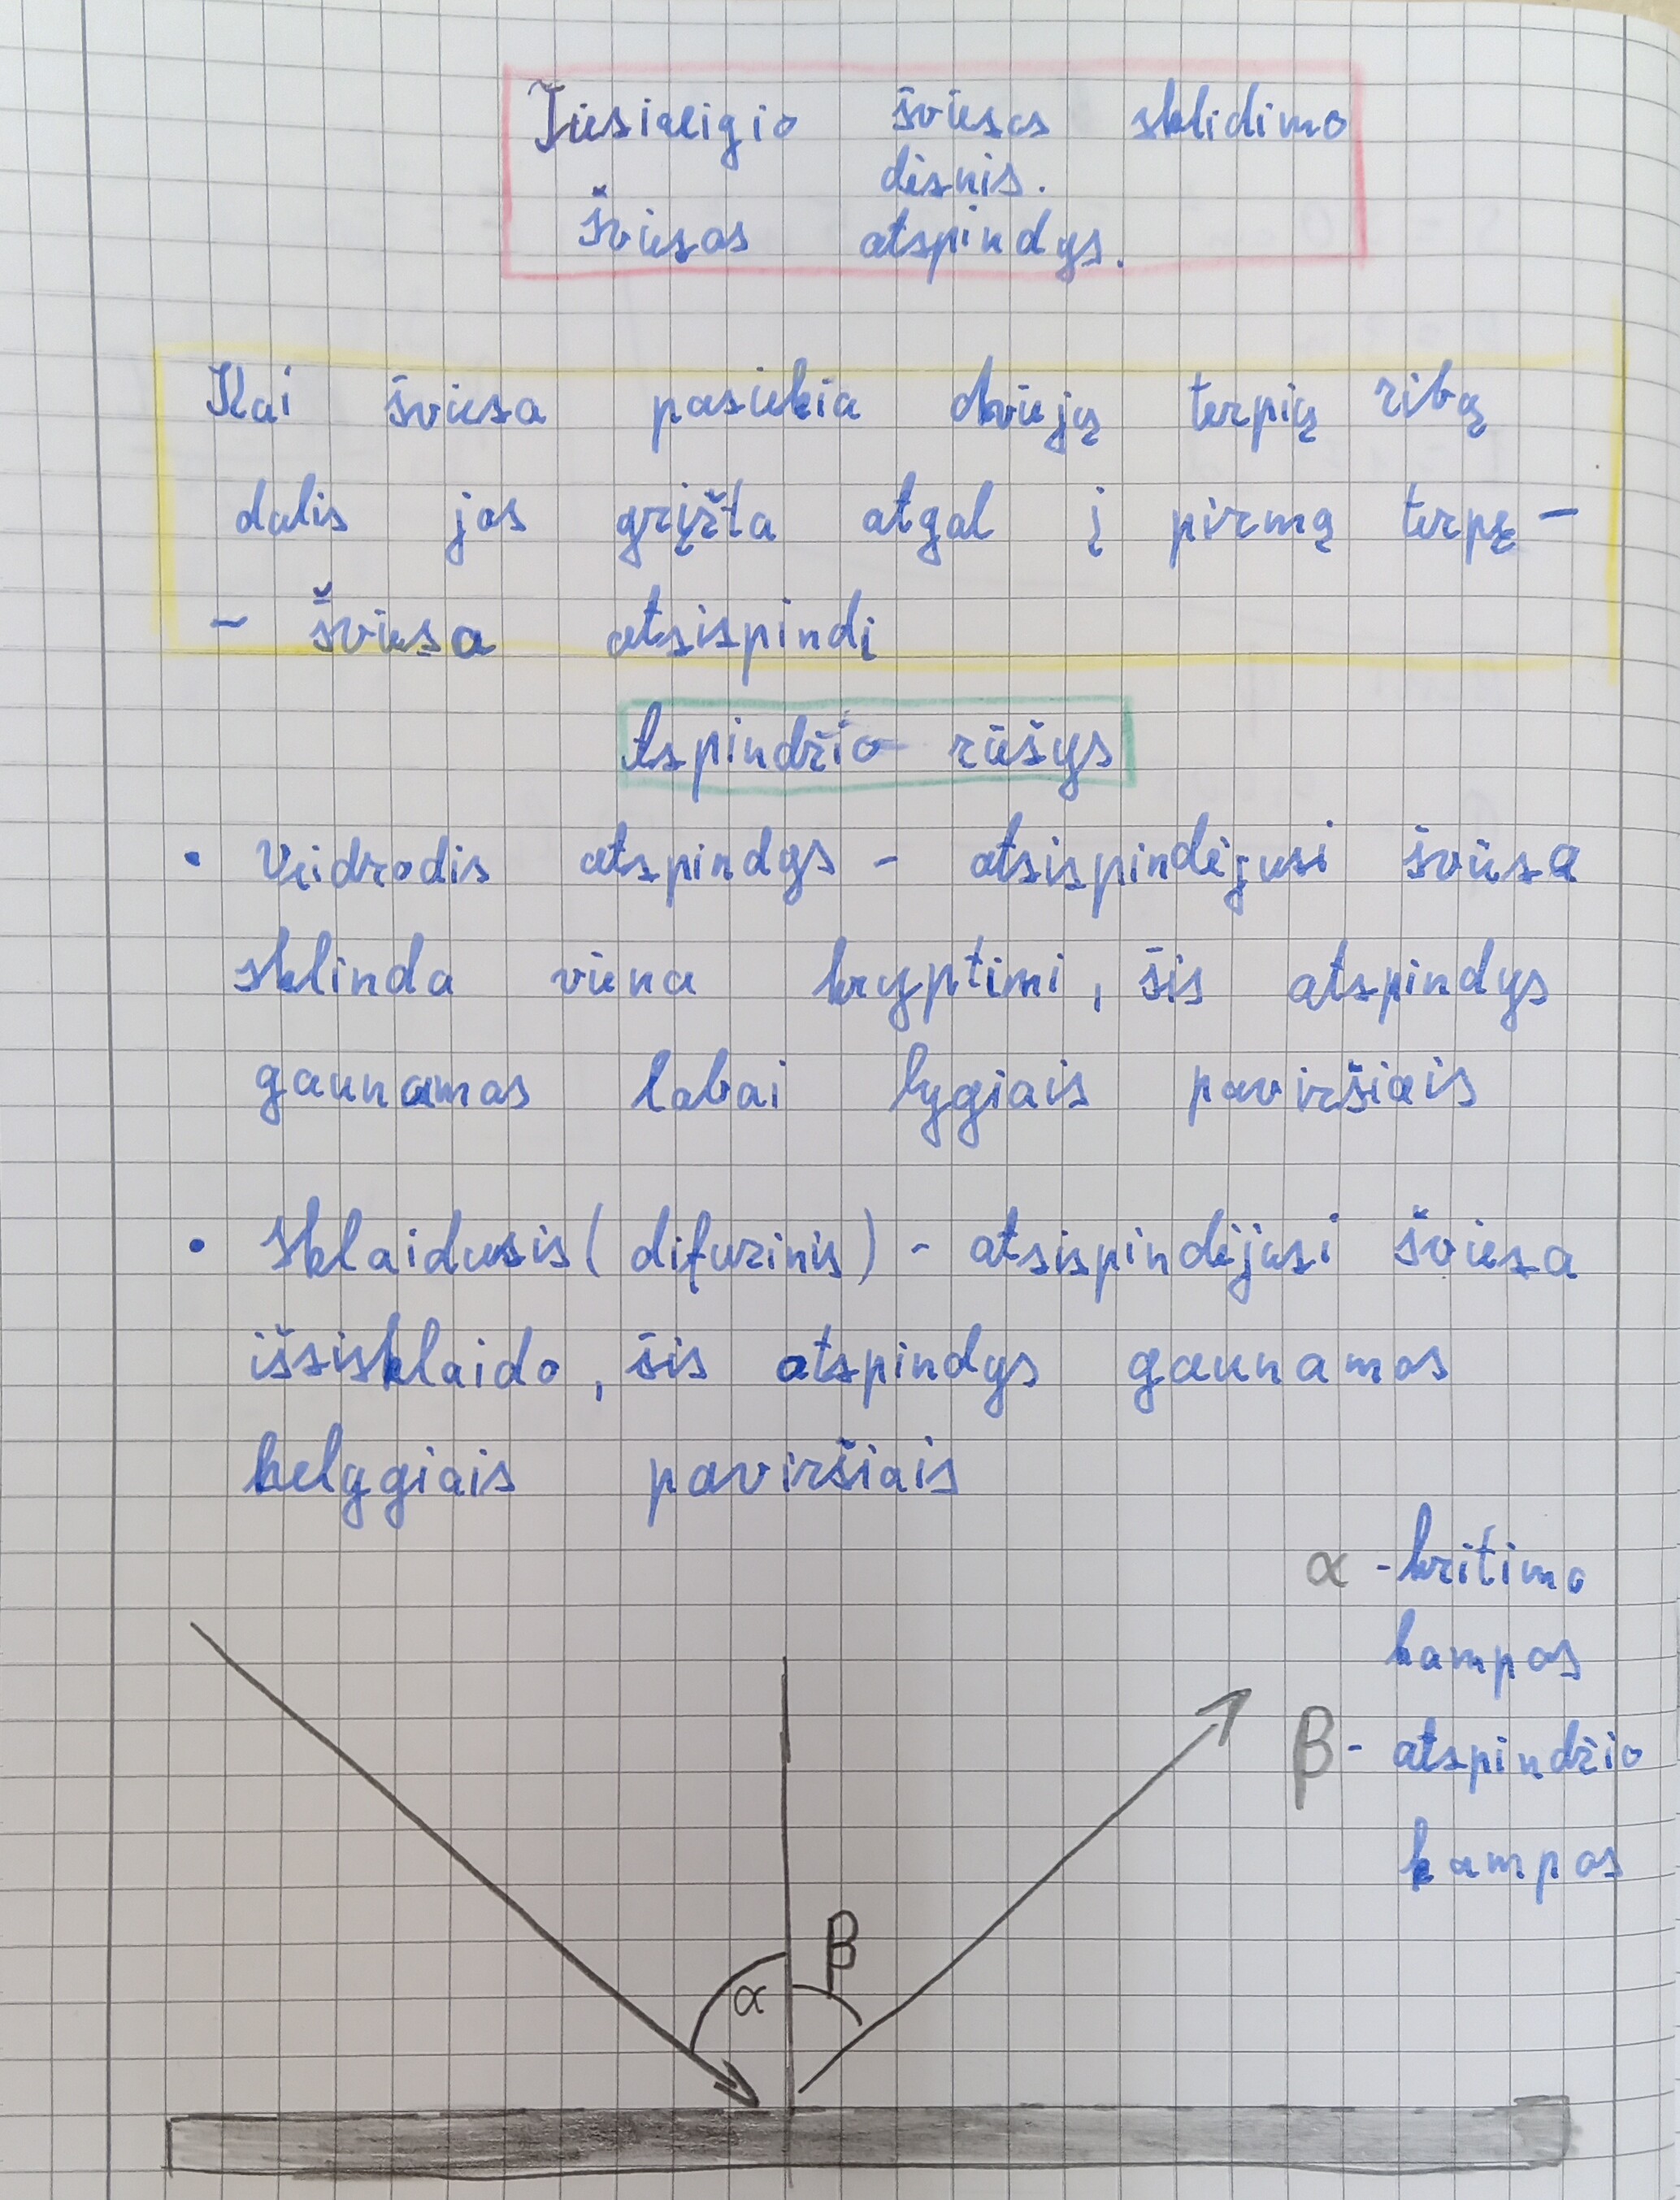 Tiesiaeigio šviesos sklidimo
dėsnis.
Šviesos atspindys.
Kai šviesa pasiekia dviejų terpių ribą
dalis jos grįžta atgal į pirmą terpę -
- šviesa atsispindi
Atspindžio rūšys
• Veidrodis atspindys - atsispindėjusi šviesa
sklinda viena kryptimi, šis atspindys
gaunamas labai lygiais paviršiais
• Sklaidusis (difuzinis) - atsispindėjusi šviesa
išsisklaido, šis atspindys gaunamas
nelygiais paviršiais
α - kritimo
kampas
β - atspindžio
kampas
β
α